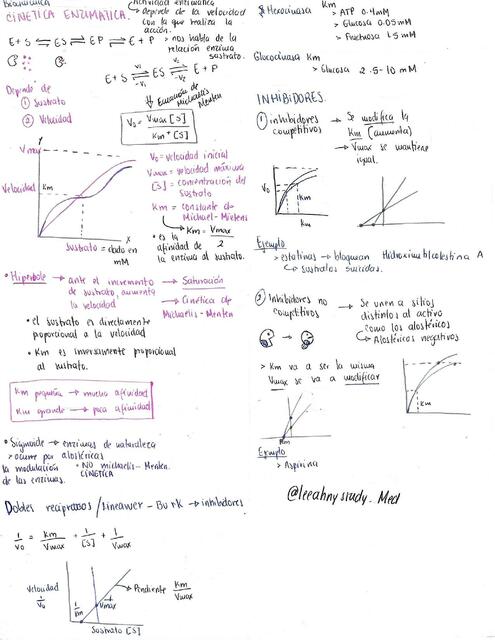 Bioquimica
CINÉTICA ENZIMÁTICA.
Actividad enzimática
→ depende de la velocidad
con la que realiza la
acción.
E+S ⇌ ES ⇌ EP ⇌ E + P
> nos habla de la
relación enzima
sustrato.
E + S ⇌ ES ⇌ E + P
V2
-V1
-V2
Ecuación de
Michaelis
Menten
V0 = Vmax [S] / Km + [S]
Depende de
① Sustrato
② Velocidad
V0 = velocidad inicial
Vmax = velocidad máxima
[S] = concentración del
sustrato
Km = constante de
Michael - Mentens
Km = Vmax / 2
• es la
afinidad de
la enzima al sustrato.
Y
Vmax
Velocidad
Km
X
Sustrato = dado en
mM
• Hiperbole → ante el incremento
de sustrato, aumenta
la velocidad
→ Saturación
→ Cinética de
Michaelis - Menten
• el sustrato es directamente
proporcional a la velocidad
• Km es inversamente proporcional
al sustrato.
Km pequeña → mucha afinidad
Km grande → poca afinidad
• Sigmoide → enzimas de naturaleza
> ocurre por alostéricas
la modulación
de las enzimas.
• NO michaelis - Menten.
CINÉTICA
Dobles reciprocos / lineawer - Burk → inhibidores
1/V0 = Km/Vmax + 1/[S] + 1/Vmax
Velocidad
1/V0
Pendiente Km/Vmax
1/Km
1/Vmax
Sustrato [S]
Hexocinasa Km
> ATP 0.4mM
> Glucosa 0.05mM
> Fructuosa 1.5mM
Glucocinasa Km
> Glucosa 2.5-10 mM
INHIBIDORES.
① inhibidores
competitivos
→ Se modifica la
Km (aumenta)
→ Vmax se mantiene
igual.
V0
Km
Km
Ejemplo
> estatinas → bloquean
A
↳ sustratos suicidas.
② Inhibidores no
competitivos
→ Se unen a sitios
distintos al activo
como los alostéricos
↳ Alostéricos negativos
> Km va a ser la misma
Vmax se va a modificar
Km
Km
Ejemplo
> Aspirina
@leeahnystudy.Med